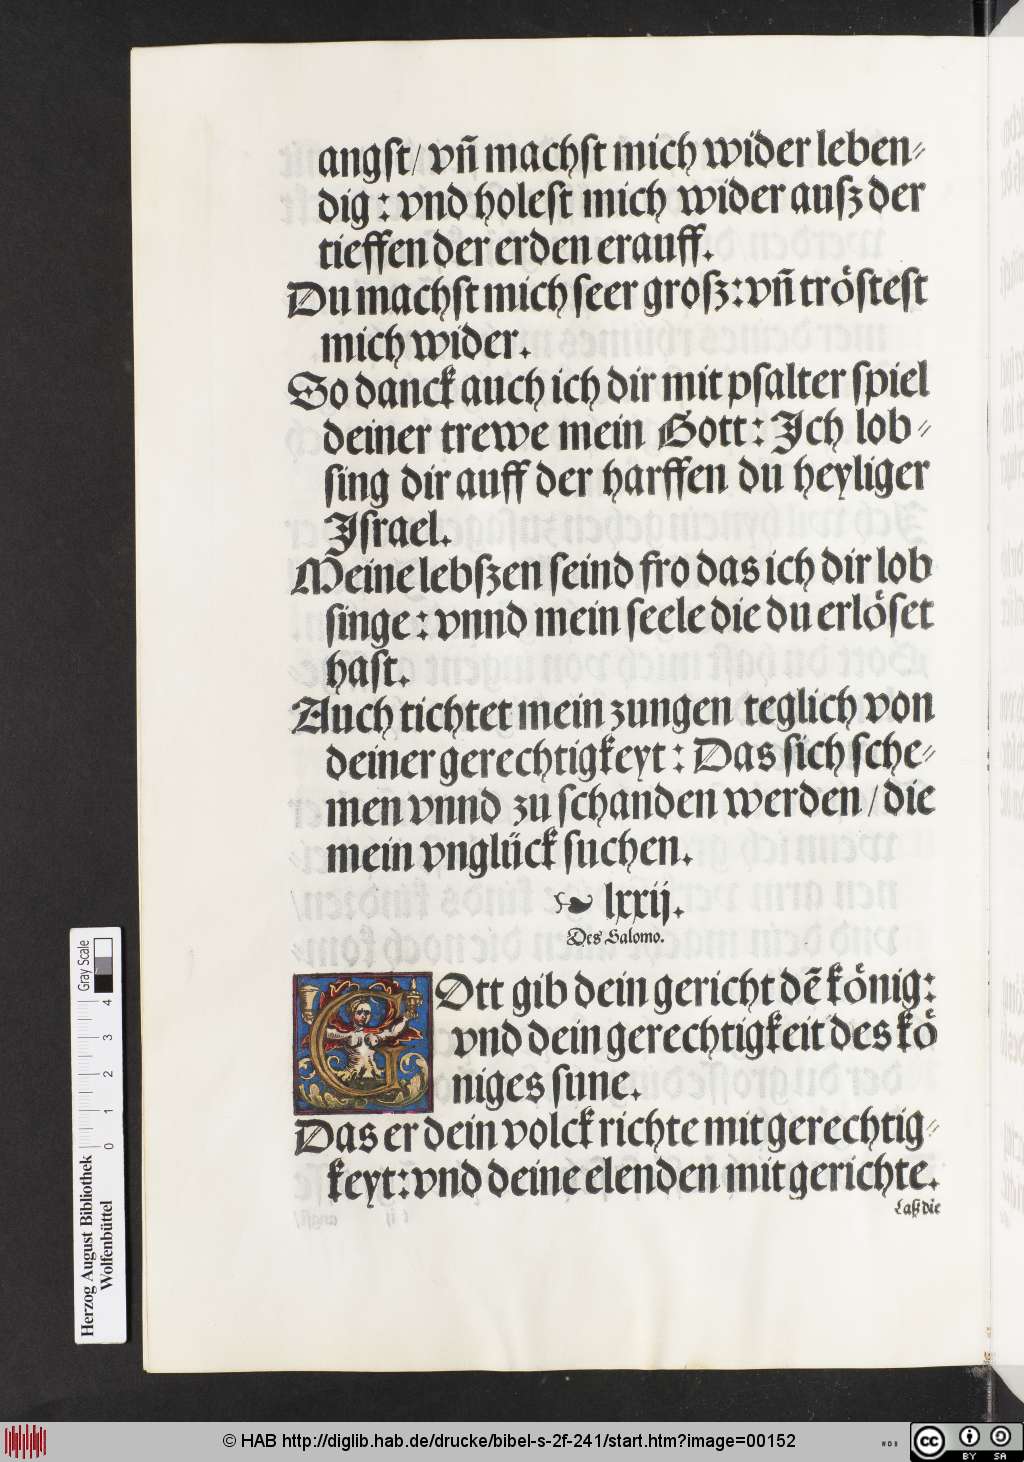 angst/ vñ machst mich wider leben⸗
dig: vnd holest mich wider ausz der
tieffen der erden erauff.
Du machst mich seer grosz: vñ tröstest
mich wider.
So danck auch ich dir mit psalter spiel
deiner trewe mein Gott: Ich lob⸗
sing dir auff der harffen du heyliger
Israel.
Meine lebszen seind fro das ich dir lob
singe: vnnd mein seele die du erlöset
hast.
Auch tichtet mein zungen teglich von
deiner gerechtigkeyt: Das sich sche⸗
men vnnd zu schanden werden/ die
mein vnglück suchen.
☙ lxxij.
Des Salomo.
GOtt gib dein gericht dē könig:
vnd dein gerechtigkeit des kö
niges sune.
Das er dein volck richte mit gerechtig⸗
keyt: vnd deine elenden mit gerichte.
Lasz die
Herzog August Bibliothek
Wolfenbüttel
0 1 2 3 4
Gray Scale
© HAB http://diglib.hab.de/drucke/bibel-s-2f-241/start.htm?image=00152
WDB
cc BY SA